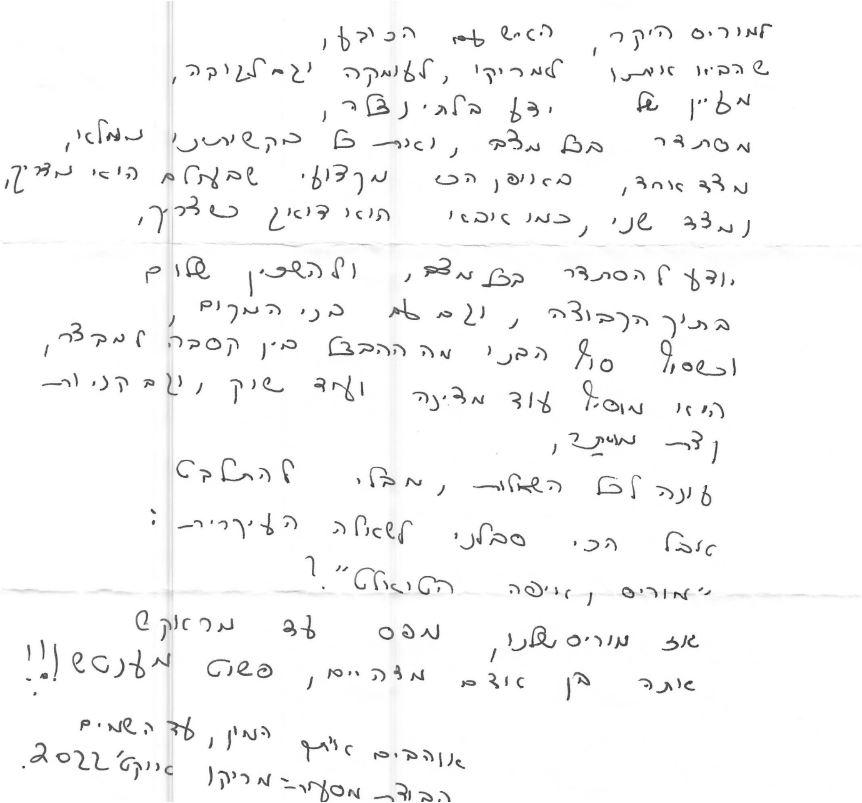 למוריס היקר, האיש עם הכובע,
שהביא אותנו למרוקו, לעומקה וגם לגובה,
מעיין של ידע בלתי נדלה,
מסתדר בכל מצב, ואת כל בקשותינו ממלא,
מצד אחד, באופן הכי מקצועי שבעולם הוא מדריך,
ומצד שני, כמו אבא הוא דואג כשצריך,
יודע להסתדר בכל מצב, ולהשכין שלום
בתוך הקבוצה, וגם עם בני המקום,
וכשסוף סוף הבנו מה ההבדל בין קסבה למבצר,
הוא מוסיף עוד מדינה ועוד שוק, וגם קניות
קצת מותר,
עונה לכל השאלות, מבלי להתלבט
אבל הכי סבלני לשאלה העיקרית:
"מוריס, איפה הטואלט"?
אז מוריס שלנו, מפס עד מראקש
אתה בן אדם מדהים, פשוט מענטש!!!
אוהבים אותך המון, עד השמים
קבוצת מרוקו אוקט' 2022.